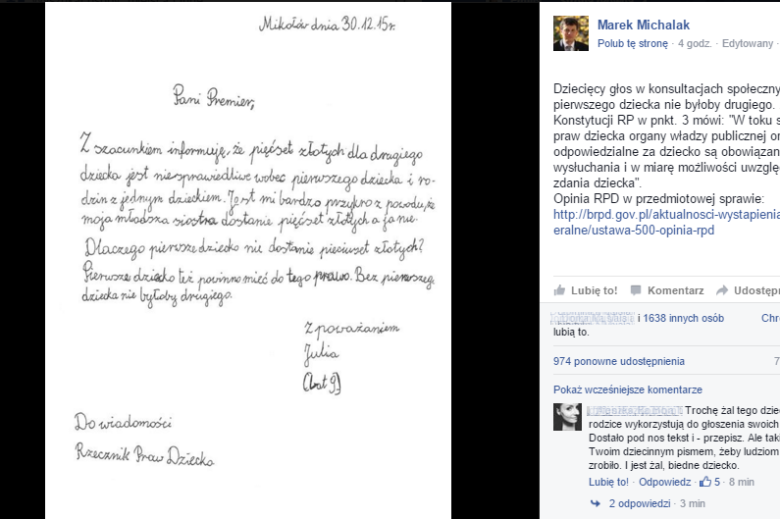 Mikołów dnia 30.12.15r.
Pani Premier,
Z szacunkiem informuję, że pięćset złotych dla drugiego
dziecka jest niesprawiedliwe wobec pierwszego dziecka i ro-
dzin z jednym dzieckiem. Jest mi bardzo przykro z powodu, że
moja młodsza siostra dostanie pięćset złotych a ja nie.
Dlaczego pierwsze dziecko nie dostanie pięciuset złotych?
Pierwsze dziecko też powinno mieć do tego prawo. Bez pierwszego
dziecka nie byłoby drugiego.
Z poważaniem
Julia
(lat 9)
Do wiadomości
Rzecznik Praw Dziecka
Marek Michalak
Polub tę stronę · 4 godz. · Edytowany ·
Dziecięcy głos w konsultacjach społeczny
pierwszego dziecka nie byłoby drugiego.
Konstytucji RP w pnkt. 3 mówi: "W toku s
praw dziecka organy władzy publicznej or
odpowiedzialne za dziecko są obowiązan
wysłuchania i w miarę możliwości uwzglę
zdania dziecka".
Opinia RPD w przedmiotowej sprawie:
http://brpd.gov.pl/aktualnosci-wystapienia
eralne/ustawa-500-opinia-rpd
Lubię to! Komentarz Udostępn
i 1638 innych osób Chr
lubią to.
974 ponowne udostępnienia 7
Pokaż wcześniejsze komentarze
Trochę żal tego dzie
rodzice wykorzystują do głoszenia swoich
Dostało pod nos tekst i - przepisz. Ale taki
Twoim dziecinnym pismem, żeby ludziom
zrobiło. I jest żal, biedne dziecko.
Lubię to! · Odpowiedz · 5 · 8 min
2 odpowiedzi · 3 min